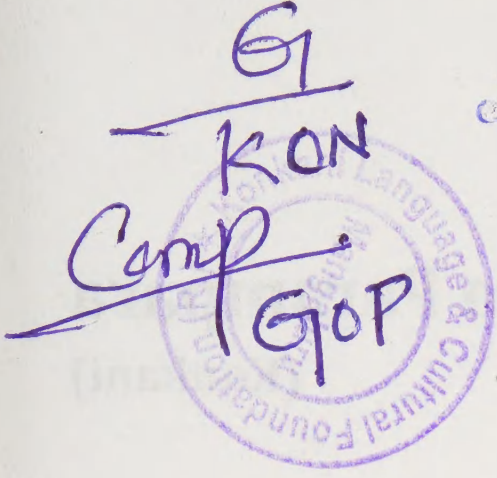 G
KON
Comp.
GOP
Konkani Language & Cultural Foundation (R)